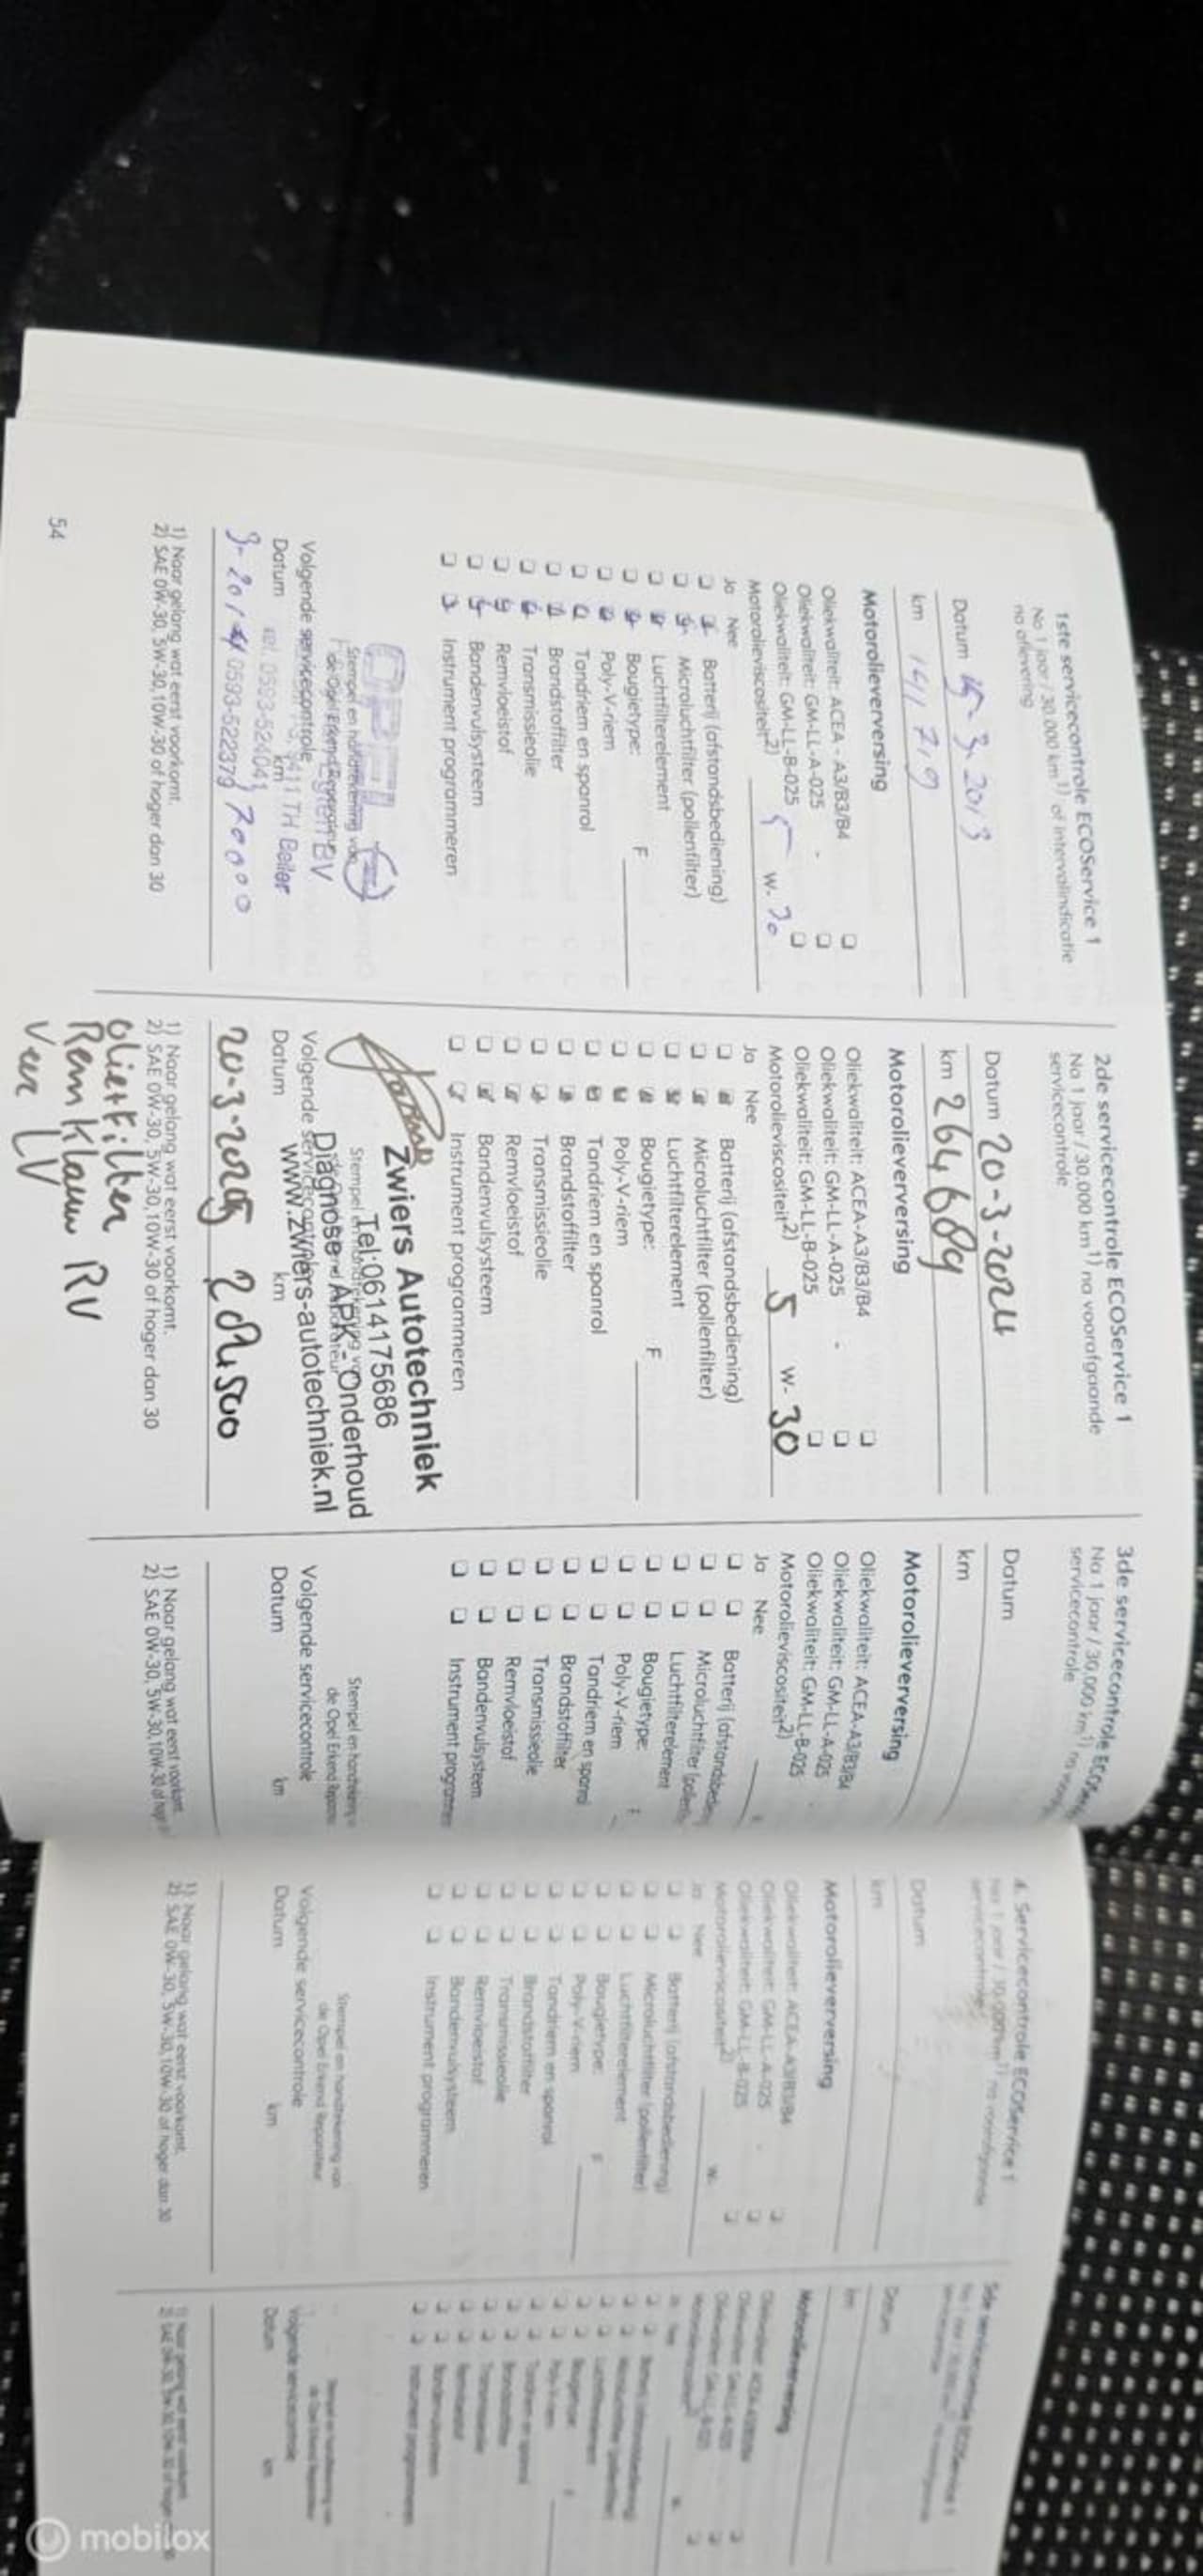 1ste servicecontrole ECOService 1
Na 1 jaar / 30.000 km 1) of intervalindicatie
na aflevering
Datum 15-3-2013
km 141719
Motorolieverversing
Oliekwaliteit: ACEA - A3/B3/B4
Oliekwaliteit: GM-LL-A-025
Oliekwaliteit: GM-LL-B-025
Motorolieviscositeit2) 5 W-30
Ja Nee
Batterij (afstandsbediening)
Microluchtfilter (pollenfilter)
Luchtfilterelement
Bougietype: F
Poly-V-riem
Tandriem en spanrol
Brandstoffilter
Transmissieolie
Remvloeistof
Bandenvulsysteem
Instrument programmeren
OPEL
Stempel en handtekening van
BV
9411 TH Beilen
Volgende servicecontrole
Datum km
tel. 0593-524041
0593-522379
1) Naar gelang wat eerst voorkomt.
2) SAE 0W-30, 5W-30,10W-30 of hoger dan 30
54
2de servicecontrole ECOService 1
Na 1 jaar / 30.000 km1) na voorafgaande
servicecontrole
Datum 20-3-2024
km 264689
Motorolieverversing
Oliekwaliteit: ACEA-A3/B3/B4
Oliekwaliteit: GM-LL-A-025
Oliekwaliteit: GM-LL-B-025
Motorolieviscositeit2) 5 W-30
Ja Nee
Batterij (afstandsbediening)
Microluchtfilter (pollenfilter)
Luchtfilterelement
Bougietype: F
Poly-V-riem
Tandriem en spanrol
Brandstoffilter
Transmissieolie
Remvloeistof
Bandenvulsysteem
Instrument programmeren
Zwiers Autotechniek
Tel:0614175686
Diagnose - APK - Onderhoud
www.zwiers-autotechniek.nl
Volgende servicecontrole
Datum km
20-3-2025
1) Naar gelang wat eerst voorkomt.
2) SAE 0W-30, 5W-30,10W-30 of hoger dan 30
olie+Filter
Remklauw RV
Veer LV
3de servicecontrole
Na 1 jaar / 30.000 km1) na
servicecontrole
Datum
km
Motorolieverversing
Oliekwaliteit: ACEA-A3/B3/B4
Oliekwaliteit: GM-LL-A-025
Oliekwaliteit: GM-LL-B-025
Motorolieviscositeit2)
Ja Nee
Batterij
Microluchtfilter
Luchtfilterelement
Bougietype:
Poly-V-riem
Tandriem en spanrol
Brandstoffilter
Transmissieolie
Remvloeistof
Bandenvulsysteem
Instrument
Stempel en handtekening
de Opel Erkend
Volgende servicecontrole
Datum km
1) Naar gelang wat eerst voorkomt
2) SAE 0W-30, 5W-30,10W-30 of
4. Servicecontrole ECOService 1
Na 1 jaar / 30.000 km1) na voorafgaande
servicecontrole
Datum
km
Motorolieverversing
Oliekwaliteit: ACEA-A3/B3/B4
Oliekwaliteit: GM-LL-A-025
Oliekwaliteit: GM-LL-B-025
Motorolieviscositeit2) W-
Ja Nee
Batterij (afstandsbediening)
Microluchtfilter (pollenfilter)
Luchtfilterelement
Bougietype: F
Poly-V-riem
Tandriem en spanrol
Brandstoffilter
Transmissieolie
Remvloeistof
Bandenvulsysteem
Instrument programmeren
Stempel en handtekening van
de Opel Erkend Reparateur
Volgende servicecontrole
Datum km
1) Naar gelang wat eerst voorkomt.
2) SAE 0W-30, 5W-30,10W-30 of hoger dan 30
5de servicecontrole ECOService 1
Datum
km
Motorolieverversing
Volgende servicecontrole
Datum km
mobilox